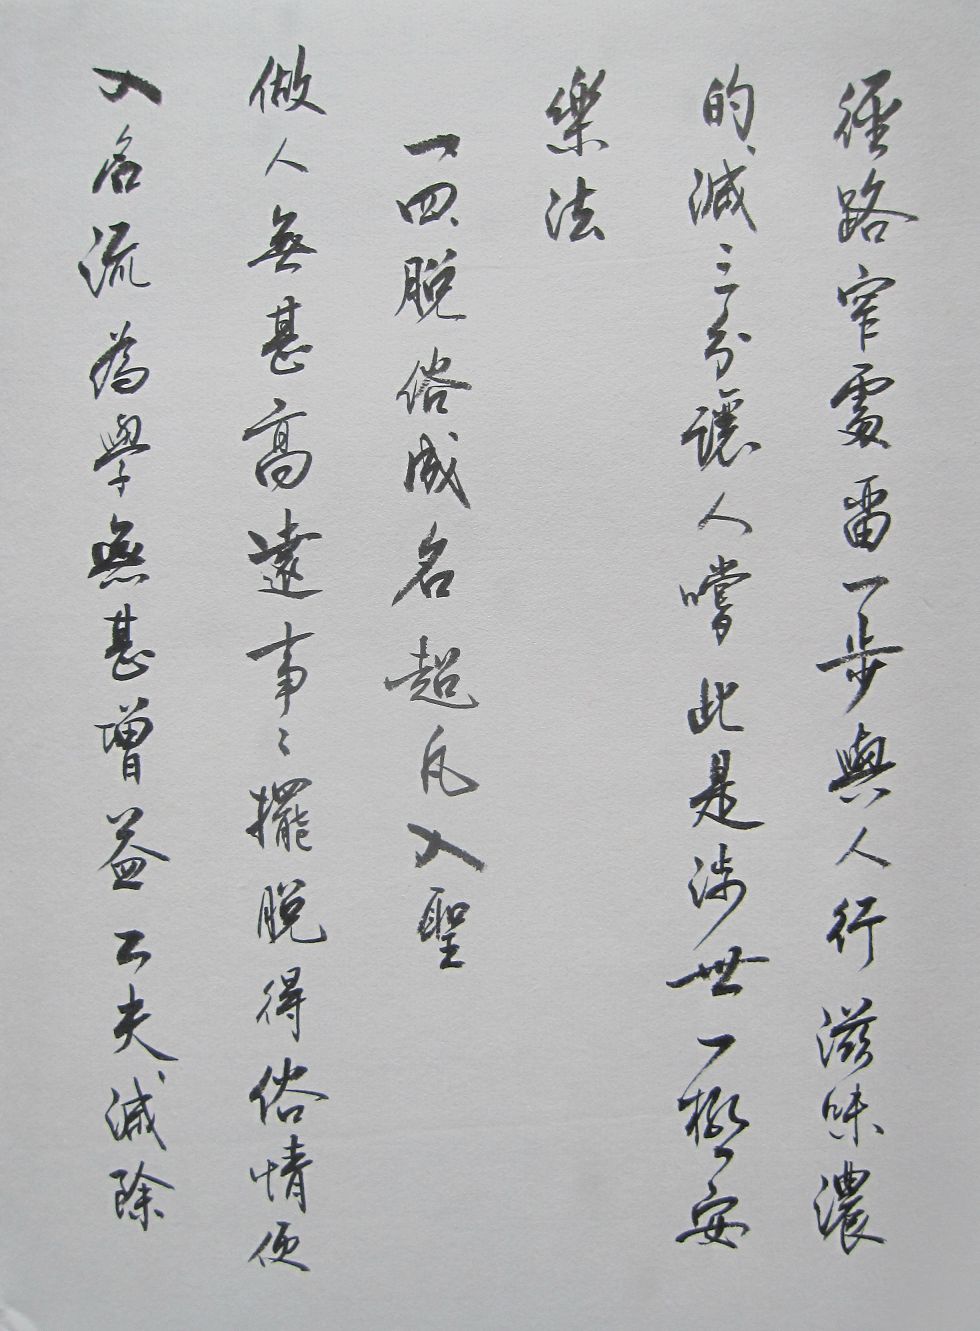 徑路窄處雷一步與人行滋味濃
的減三分讓人嚐此是涉世一極安
樂法
一四脫俗成名超凡入聖
做人無甚高遠事々擺脫得俗情便
入名流為學無甚增益工夫減除